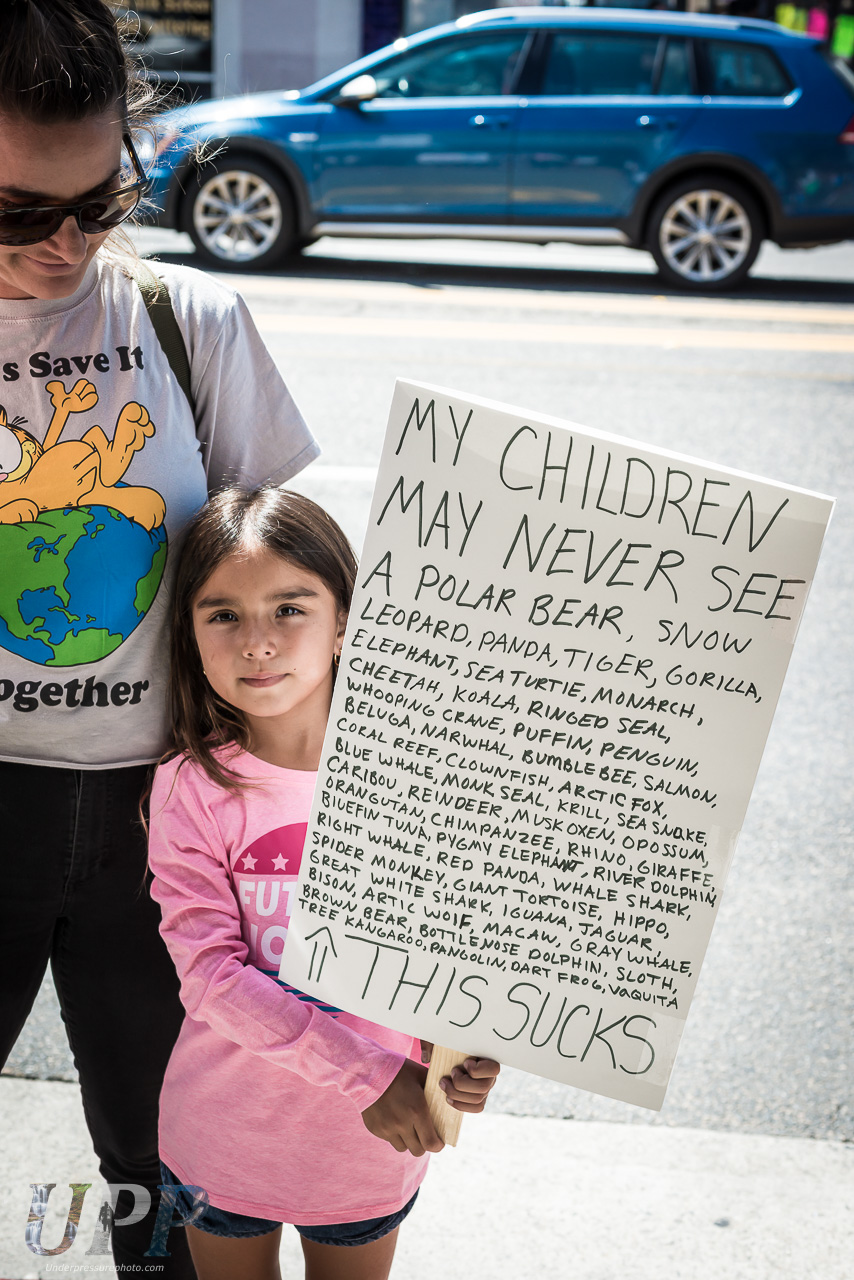 s Save It
ogether
FUT
MY CHILDREN
MAY NEVER SEE
A POLAR BEAR, SNOW
LEOPARD, PANDA, TIGER, GORILLA,
ELEPHANT, SEA TURTLE, MONARCH,
CHEETAH, KOALA, RINGED SEAL,
WHOOPING CRANE, PUFFIN, PENGUIN,
BELUGA, NARWHAL, BUMBLEBEE, SALMON,
CORAL REEF, CLOWNFISH, ARCTIC FOX,
BLUE WHALE, MONK SEAL, KRILL, SEA SNAKE,
CARIBOU, REINDEER, MUSK OXEN, OPOSSUM,
ORANGUTAN, CHIMPANZEE, RHINO, GIRAFFE,
BLUEFIN TUNA, PYGMY ELEPHANT, RIVER DOLPHIN,
RIGHT WHALE, RED PANDA, WHALE SHARK,
SPIDER MONKEY, GIANT TORTOISE, HIPPO,
GREAT WHITE SHARK, IGUANA, JAGUAR,
BISON, ARTIC WOLF, MACAW, GRAY WHALE,
BROWN BEAR, BOTTLENOSE DOLPHIN, SLOTH,
TREE KANGAROO, PANGOLIN, DART FROG, VAQUITA
THIS SUCKS
UPP
Underpressurephoto.com